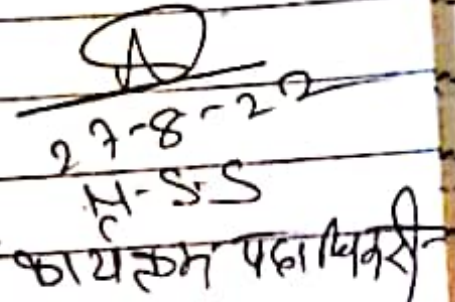 27-8-22
N-S.S
कार्यक्रम पदाधिकारी